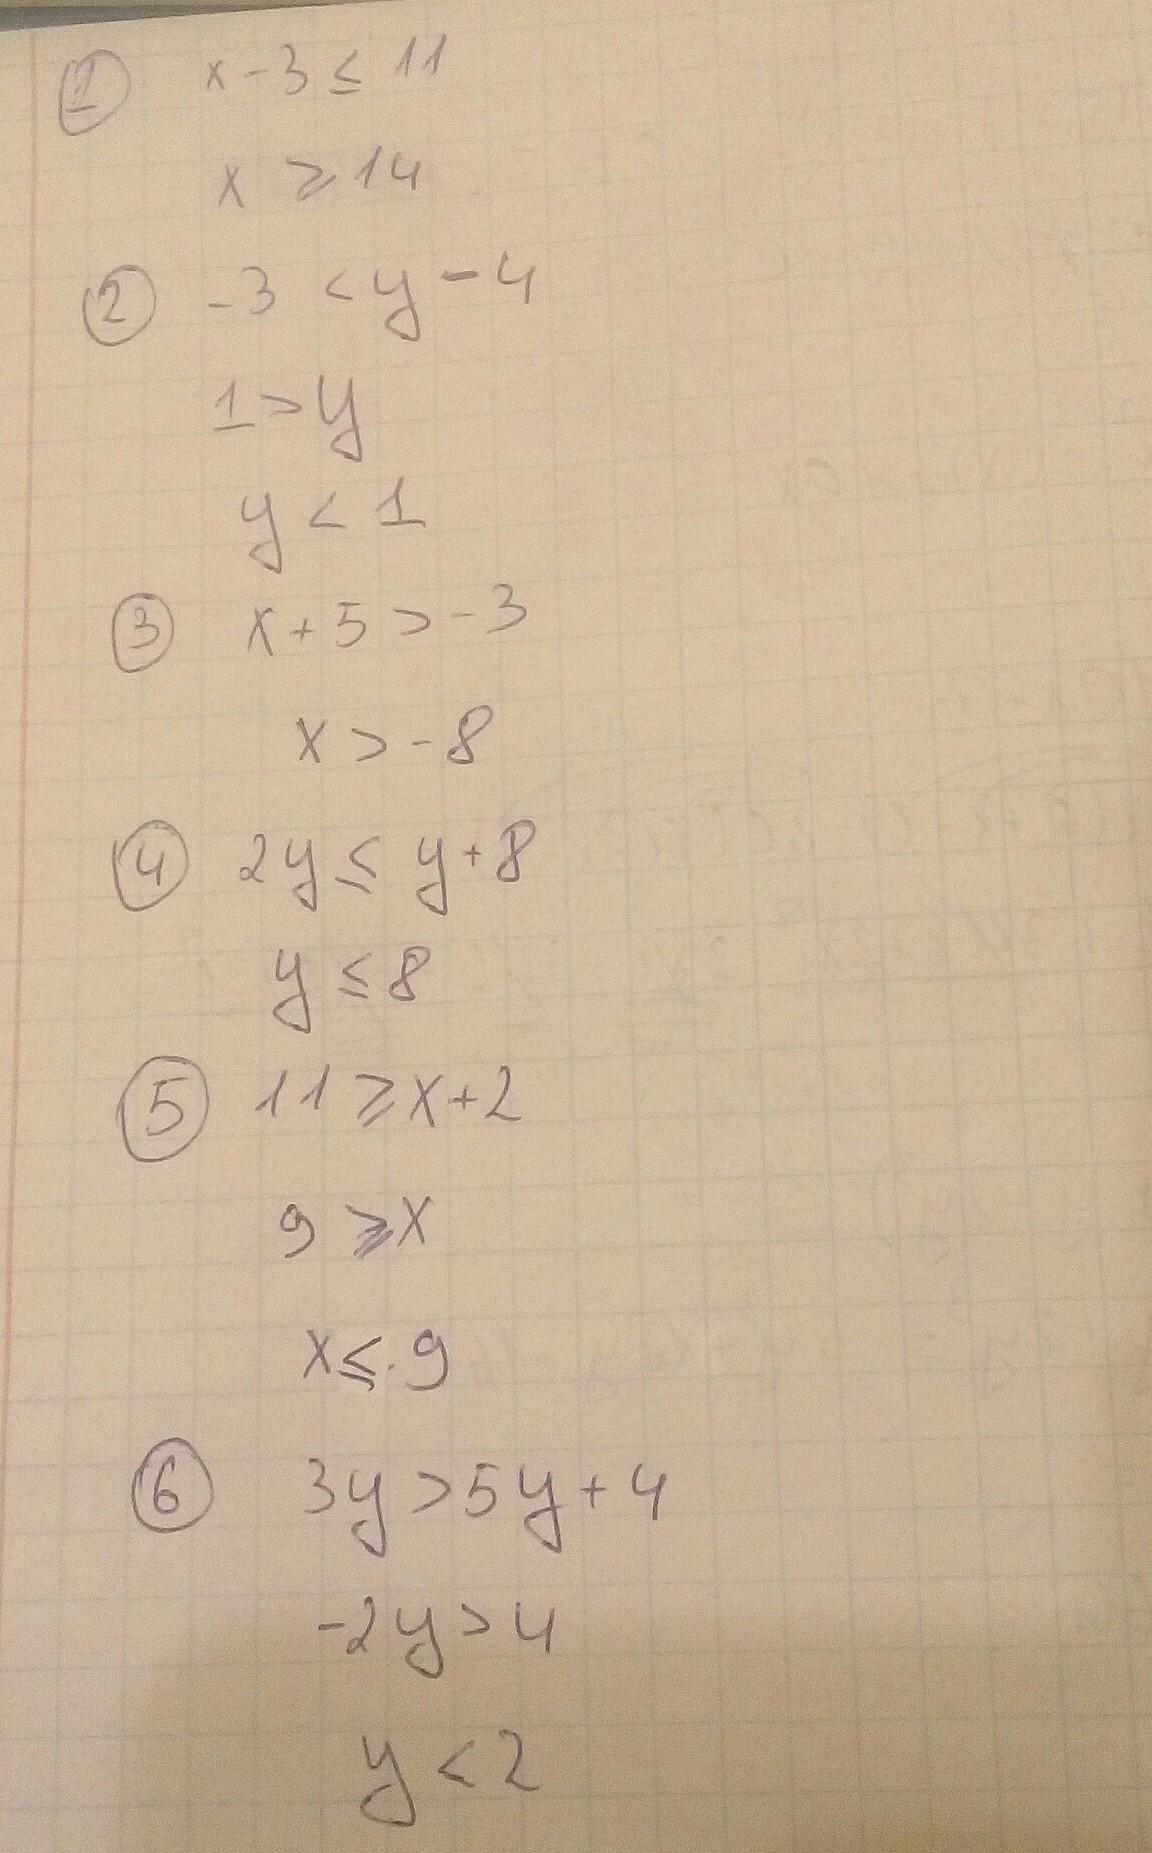 ① x - 3 ≤ 11
x ≥ 14
② -3 < y - 4
1 > y
y < 1
③ x + 5 > -3
x > -8
④ 2y ≤ y + 8
y ≤ 8
⑤ 11 ≥ x + 2
9 ≥ x
x ≤ 9
⑥ 3y > 5y + 4
-2y > 4
y < 2